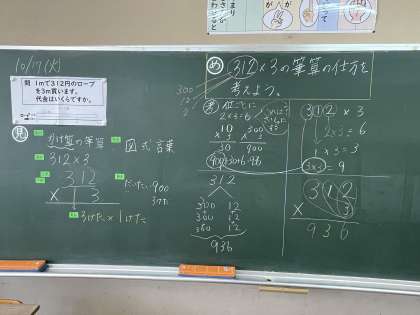 10/17(火)
問 1mで312円のロープ
を3m買います。
代金はいくらですか。
め 312×3の筆算の仕方を
考えよう。
300
12
2
見
かけ算の筆算
図 式 言葉
312×3
312
× 3
だいたい900
3けた
3けた×1けた
考 位ごとに
2×3=6
10
× 3
30
300
× 3
900
900+30+6=936
312
300 12
300 12
300 12
936
312 × 3
2×3=6
1×3=3
3×3=9
312
× 3
936